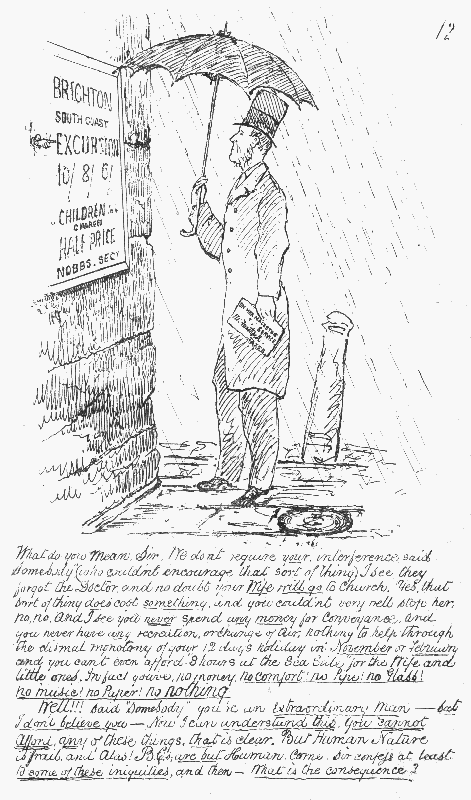 12
BRIGHTON
SOUTH COAST
EXCURSION
10/ 8/ 6/
CHILDREN
CHARGED
HALF PRICE
NOBBS. SECY
What do you mean, Sir, We dont require your interference said
somebody (who couldnt encourage that sort of thing) I see they
forgot the Doctor, and no doubt your Wife will go to Church, Yes, that
sort of thing does cost something, and you couldn't very well stop her,
no, no, And I see you never spend any money for Conveyance, and
you never have any recreation, or change of Air, nothing to help through
the dismal monotony of your 12 days holiday in November or February
and you can't even afford 8 hours at the Sea Side, for the Wife and
little ones. In fact you've, no money, no comfort! no Pipe! no Glass!
no music! no Paper! no nothing
Well!!! said "Somebody" you're an Extraordinary Man — but
I don't believe you — Now I can understand this, You cannot
Afford, any of these things, that is clear. But Human Nature
is frail, and Alas! are but Human. Come Sir confess at least
to some of these iniquities, and then — What is the consequence?